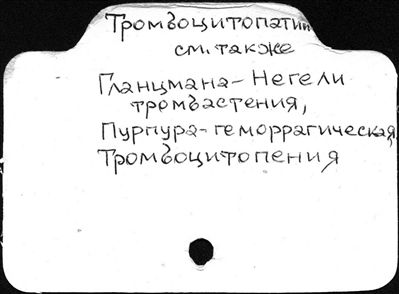 Тромбоцитопатии
см. также
Гланцмана - Негели
тромбастения,
Пурпура - геморрагическая,
Тромбоцитопения